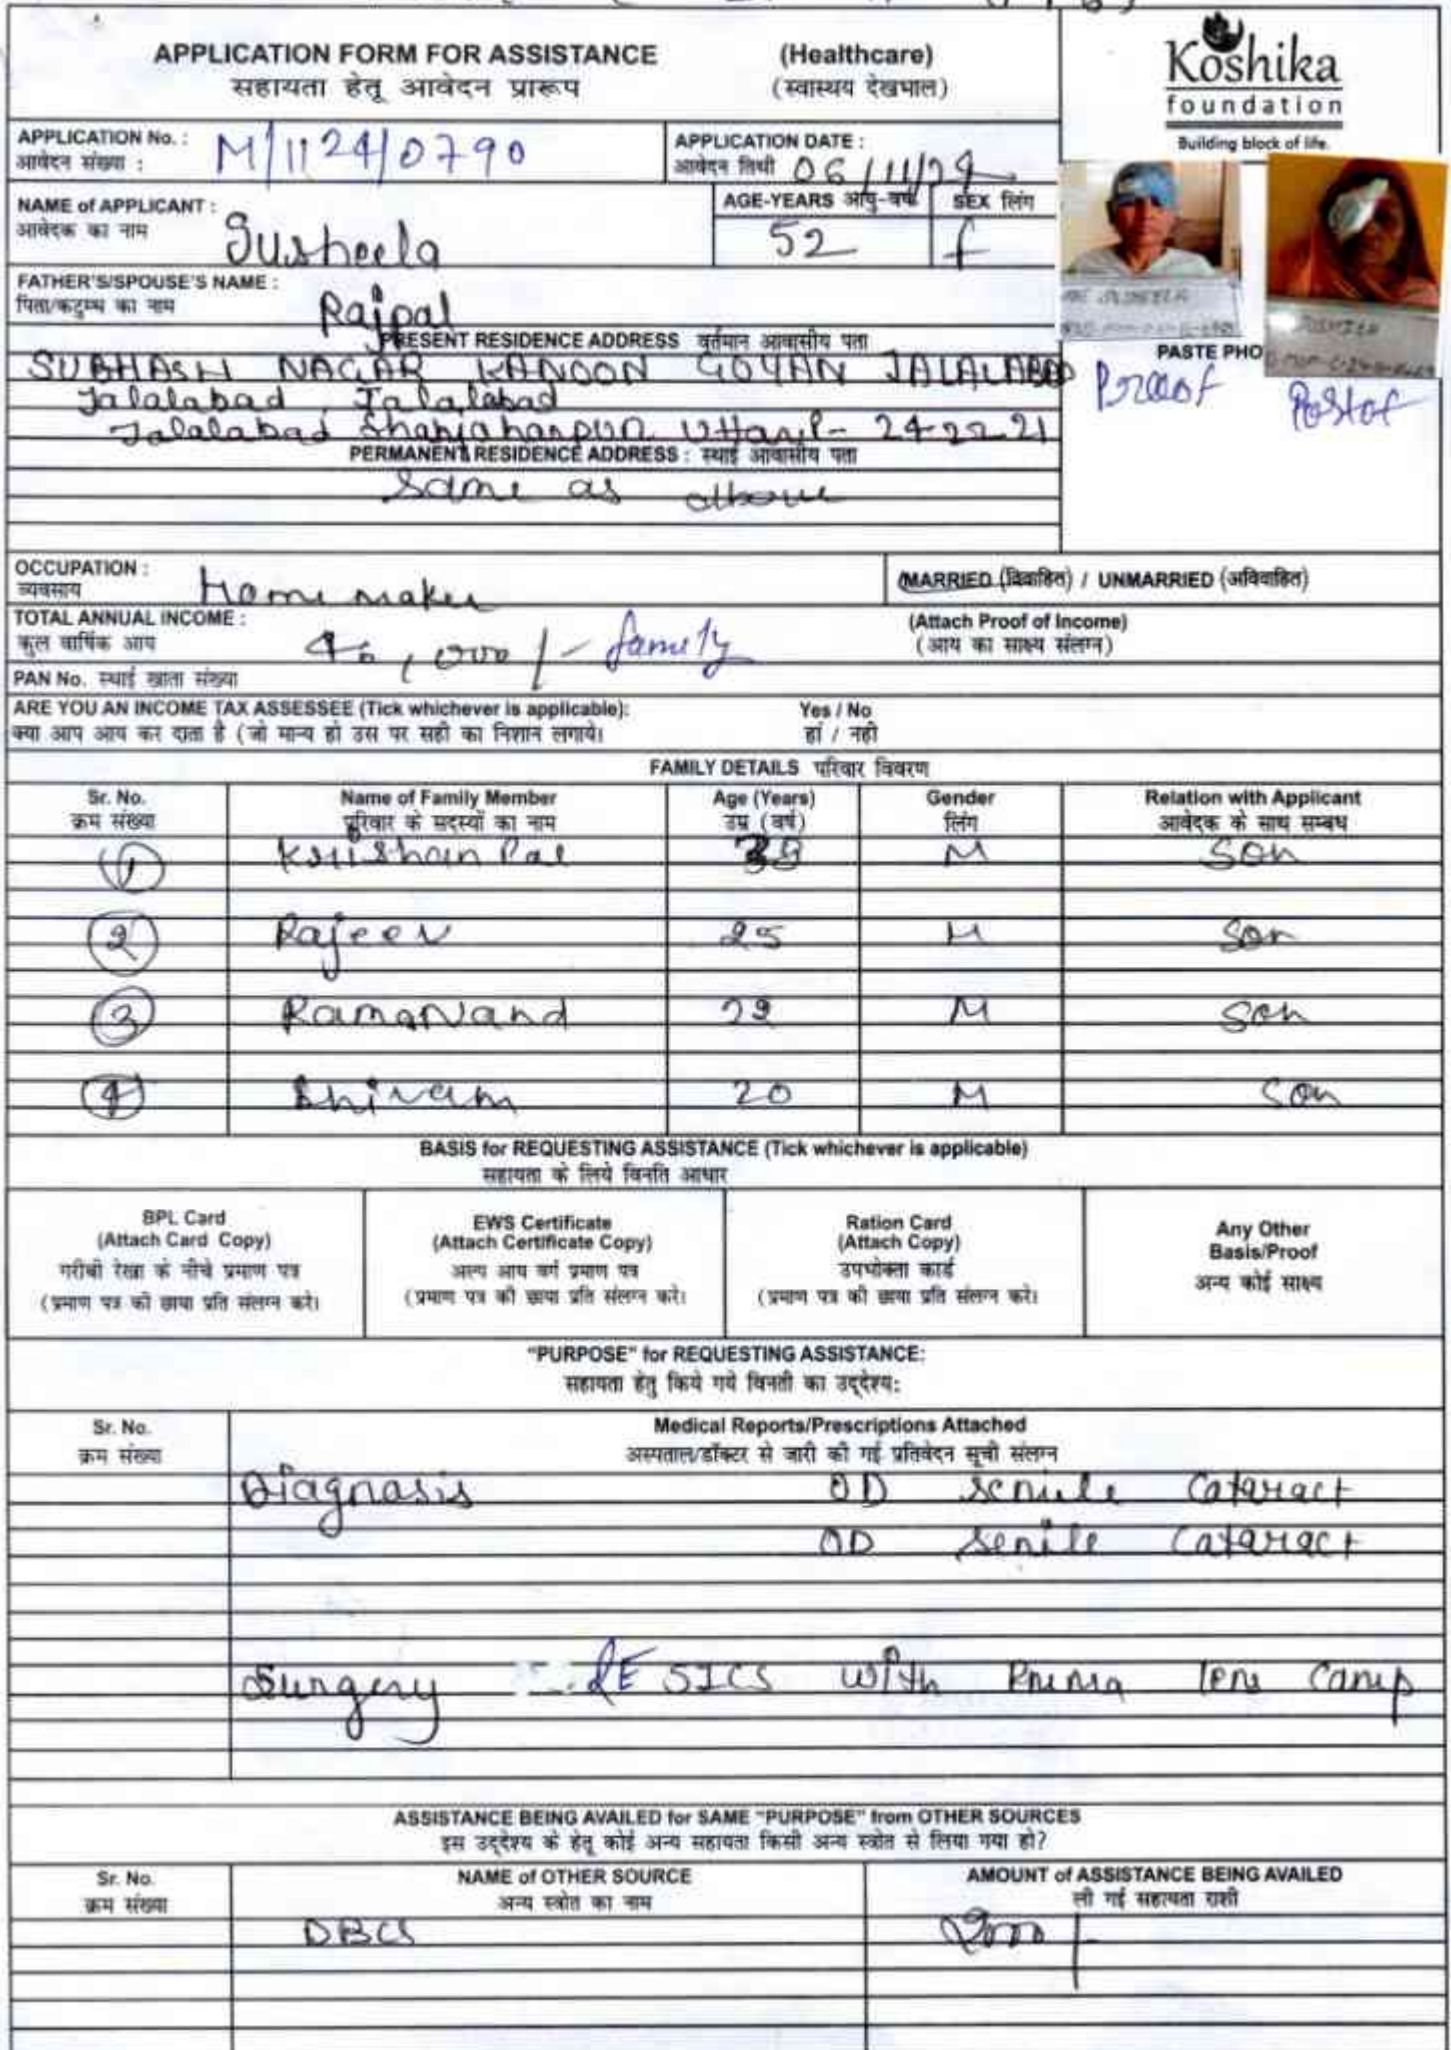 APPLICATION FORM FOR ASSISTANCE (Healthcare)
सहायता हेतू आवेदन प्रारूप (स्वास्थय देखभाल)
Koshika
foundation
Building block of life.
APPLICATION No. : M/1124/0790
आवेदन संख्या :
APPLICATION DATE :
आवेदन तिथी 06/11/24
NAME of APPLICANT :
आवेदक का नाम Susheela
AGE-YEARS आयु-वर्ष 52
SEX लिंग f
FATHER'S/SPOUSE'S NAME :
पिता/कटुम्ब का नाम Rajpal
PRESENT RESIDENCE ADDRESS वर्तमान आवासीय पता
SUBHASH NAGAR KANOON GOYAN JALALABAD
Jalalabad, Jalalabad
Jalalabad Shahjahanpur 24-22-21
PASTE PHO
Preof Postof
PERMANENT RESIDENCE ADDRESS : स्थाई आवासीय पता
Same as above
OCCUPATION :
व्यवसाय Home maker
MARRIED (विवाहित) / UNMARRIED (अविवाहित)
TOTAL ANNUAL INCOME :
कुल वार्षिक आय ,000/- family
(Attach Proof of Income)
(आय का साक्ष्य संलग्न)
PAN No. स्थाई खाता संख्या
ARE YOU AN INCOME TAX ASSESSEE (Tick whichever is applicable): Yes / No
क्या आप आय कर दाता है (जो मान्य हो उस पर सही का निशान लगाये। हां / नही
FAMILY DETAILS परिवार विवरण
Sr. No. Name of Family Member Age (Years) Gender Relation with Applicant
क्रम संख्या परिवार के सदस्यों का नाम उम्र (वर्ष) लिंग आवेदक के साथ सम्बध
1 Krishan Pal M Son
2 Rajeev 25 M Son
3 RamaNand M Son
4 Shivam 20 M Son
BASIS for REQUESTING ASSISTANCE (Tick whichever is applicable)
सहायता के लिये विनति आधार
BPL Card
(Attach Card Copy)
गरीबी रेखा के नीचे प्रमाण पत्र
(प्रमाण पत्र की छाया प्रति संलग्न करे।
EWS Certificate
(Attach Certificate Copy)
अल्प आय वर्ग प्रमाण पत्र
(प्रमाण पत्र की छाया प्रति संलग्न करे।
Ration Card
(Attach Copy)
उपभोक्ता कार्ड
(प्रमाण पत्र की छाया प्रति संलग्न करे।
Any Other
Basis/Proof
अन्य कोई साक्ष्य
"PURPOSE" for REQUESTING ASSISTANCE:
सहायता हेतु किये गये विनती का उद्देश्य:
Sr. No. Medical Reports/Prescriptions Attached
क्रम संख्या अस्पताल/डॉक्टर से जारी की गई प्रतिवेदन सूची संलग्न
Diagnosis OD senile Cataract
OD senile cataract
Surgery RE SICS with lens Camp
ASSISTANCE BEING AVAILED for SAME "PURPOSE" from OTHER SOURCES
इस उद्देश्य के हेतू कोई अन्य सहायता किसी अन्य स्त्रोत से लिया गया हो?
Sr. No. NAME of OTHER SOURCE AMOUNT of ASSISTANCE BEING AVAILED
क्रम संख्या अन्य स्त्रोत का नाम ली गई सहायता राशी
DBCS 2000/-